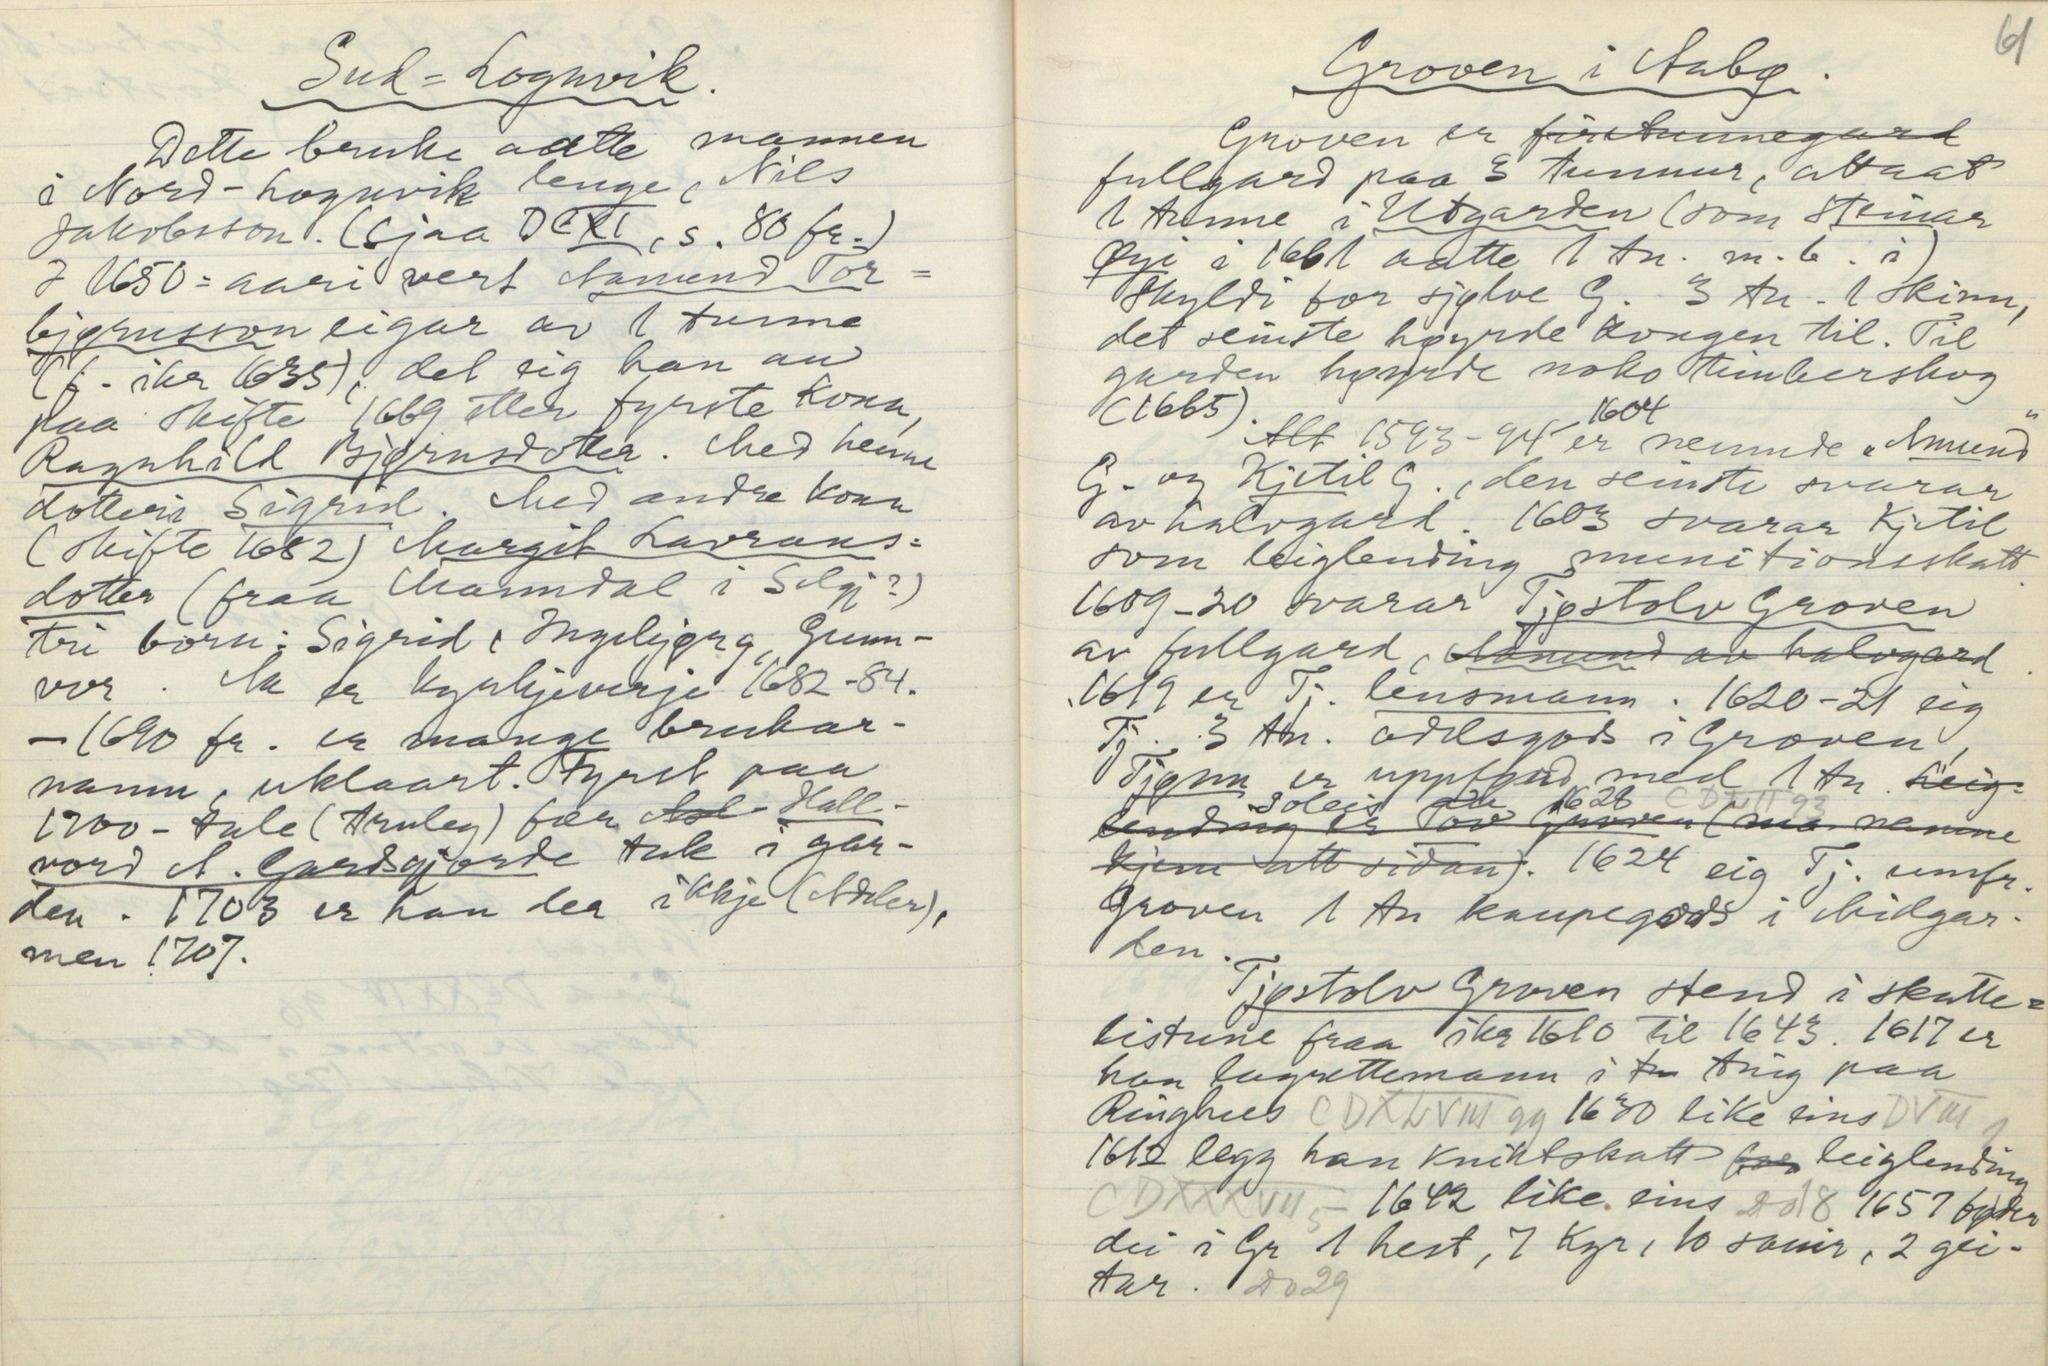 Sud-Loguvik.
Dette bruke aatte mannen
i Nord-Loguvik lenge, Nils
Jakobsson. (Sjaa DCXI, s. 80 fr.)
I 1650-aari vert Aamund Tor-
bjørnsson eigar av 1 tunne
(f. ikr 1635), det eig han au
paa skifte 1669 etter fyrste kona,
Ragnhild Bjørnsdotter. Med henne
dotteri Sigrid. Med andre kona
(skifte 1682) Margit Lavrans-
dotter (fraa Manndal i Selgj?)
tri born: Sigrid, Ingebjørg, Gunn-
vor. Aa er kyrkjeverje 1682-84.
- 1690 fr. er mange brukar-
namn, uklaart. Fyrst paa
1700-tale (Arnleg) fær Asl Hall-
vord A. Gardsgjorde tak i gar-
den. 1703 er han der ikkje (Adeler),
men 1707.
61
Groven i Aabø.
Groven er firetunnegard
fullgard paa 3 tunnur, attaat
1 tunne i Utgarden (som Steinar
Øyi i 1661 aatte 1 tn. m.b. i)
Skyldi for sjølve G. 3 tn. 1 skinn,
det seinste høyrde kongen til. Til
garden høyrde noko timberskog
(1665).
1604
Alt 1593-94 er nemnde "Amund"
G. og Kjetil G., den seinste svarar
av halvgard. 1603 svarar Kjetil
som leiglending munitionsskatt.
1609-20 svarar Tjøstolv Groven
av fullgard, Aamund av halvgard.
1619 er Tj. lensmann. 1620-21 eig
Tj. 3 tn. odelsgods i Groven,
Tjønn er uppførd med 1 tn. leig-
soleis 1626
lending er Tov Groven (ma namne
kjem att sidan). 1624 eig Tj. umfr.
Groven 1 tn kaupegods i Midgar-
den.
Tjøstolv Groven stend i skatte-
listune fraa ikr 1610 til 1643. 1617 er
han lagrettemann i tn ting paa
Ringhus CDXLVIII 99 1630 like eins DVIII
1612 legg han kniktskatt for leiglending
CDXXXVII 5 1642 like eins Do 18 1657 føder
dei i Gr 1 hest, 7 kyr, 10 sauir, 2 gei-
tar. Do 29